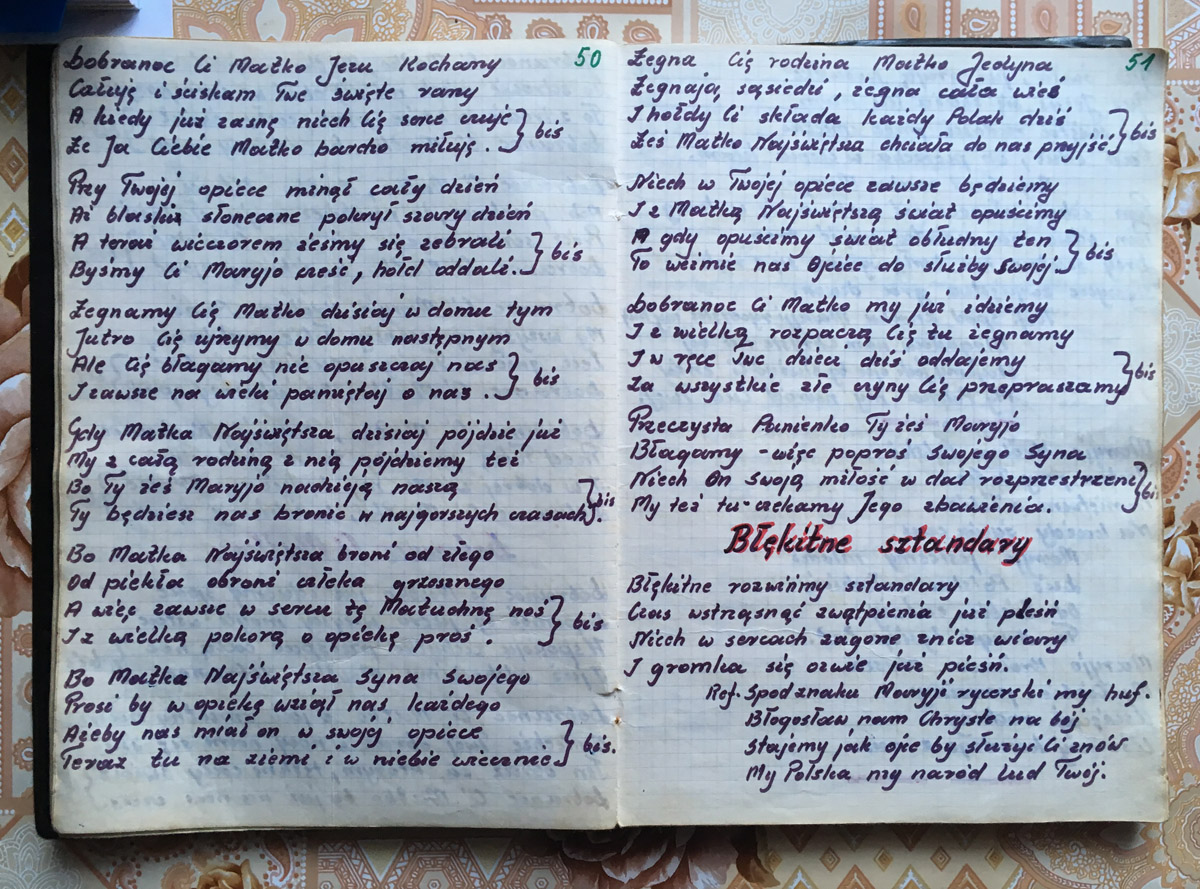 50
Dobranoc Ci Matko Jezu Kochany
Całuję i ściskam Twe święte rany
A kiedy już zasnę niech Cię serce czuje
Że Ja Ciebie Matko bardzo miłuję. } bis
Przy Twojej opiece minął cały dzień
Aż blaski słoneczne pokrył szary dzień
A teraz wieczorem żeśmy się zebrali
Byśmy Ci Maryjo cześć, hołd oddali. } bis
Żegnamy Cię Matko dzisiaj w domu tym
Jutro Cię ujrzymy w domu następnym
Ale Cię błagamy nie opuszczaj nas
I zawsze na wieki pamiętaj o nas. } bis
Gdy Matka Najświętsza dzisiaj pójdzie już
My z całą rodziną z nią pójdziemy też
Bo Ty żeś Maryjo nadzieją naszą
Ty będziesz nas bronić w najgorszych czasach. } bis
Bo Matka Najświętsza broni od złego
Od piekła obroni człeka grzesznego
A więc zawsze w sercu tę Matuchnę noś
I z wielką pokorą o opiekę proś. } bis
Bo Matka Najświętsza Syna Swojego
Prosi by w opiekę wziął nas każdego
Ażeby nas miał on w swojej opiece
Teraz tu na ziemi i w niebie wiecznie. } bis.
51
Żegna Cię rodzina Matko Jedyna
Żegnają sąsiedzi, żegna cała wieś
I hołdy Ci składa każdy Polak dziś
Żeś Matko Najświętsza chciała do nas przyjść } bis
Niech w Twojej opiece zawsze będziemy
I z Matką Najświętszą świat opuścimy
A gdy opuścimy świat obłudny ten
To weźmie nas Ojciec do służby swojej. } bis
Dobranoc Ci Matko my już idziemy
I z wielką rozpaczą Cię tu żegnamy
I w ręce Twe dzieci dziś oddajemy
Za wszystkie złe czyny Cię przepraszamy } bis
Przeczysta Panienko Ty żeś Maryjo
Błagamy - więc poproś Swojego Syna
Niech On Swoją miłość w dal rozprzestrzeni
My też tu czekamy Jego zbawienia. } bis
Błękitne sztandary
Błękitne rozwińmy sztandary
Czas wstrząsnąć zwątpienia już pleśń
Niech w sercach zagore znicz wiary
I gromka się ozwie już pieśń.
Ref. Spod znaku Maryji rycerski my huf.
Błogosław nam Chryste na bój
Stajemy jak ojce by służyć Ci znów
My Polska my naród lud Twój.